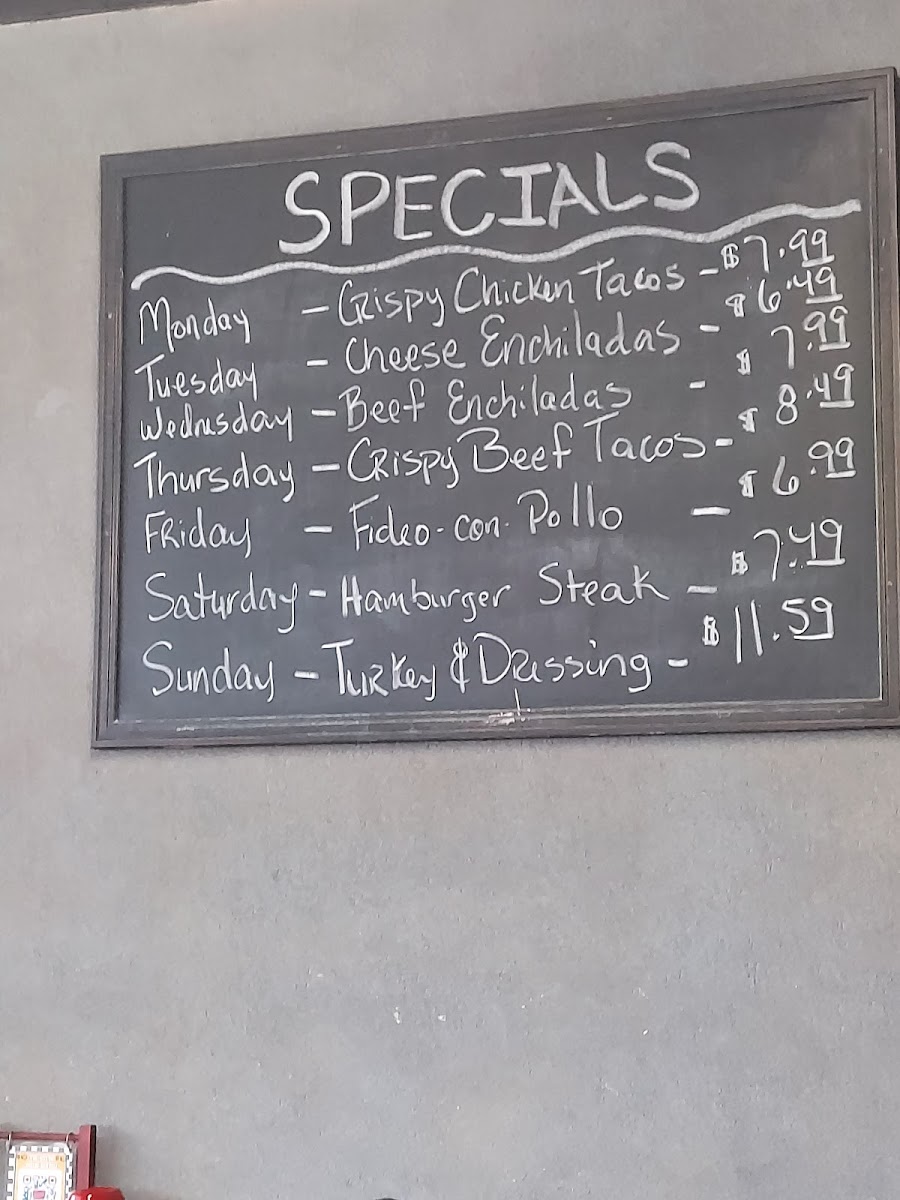 SPECIALS
Monday - Crispy Chicken Tacos - $7.99
Tuesday - Cheese Enchiladas - $6.49
Wednesday - Beef Enchiladas - $7.99
Thursday - Crispy Beef Tacos - $8.49
Friday - Fideo-con-Pollo - $6.99
Saturday - Hamburger Steak - $7.49
Sunday - Turkey & Dressing - $11.59